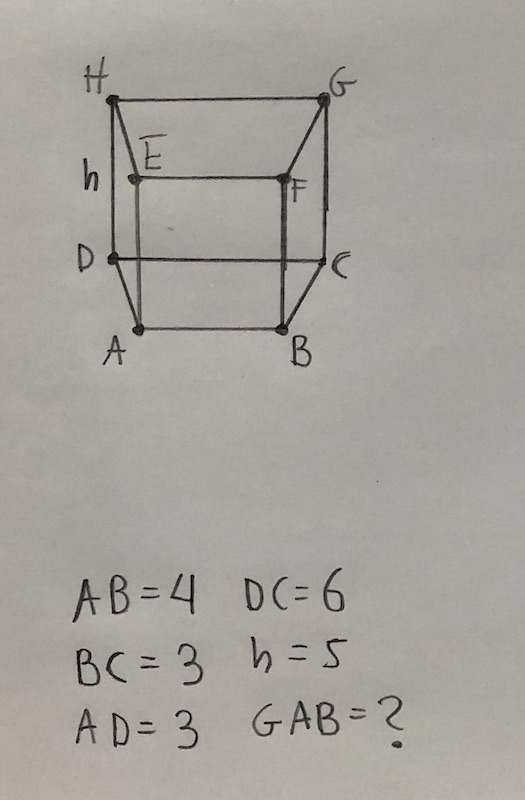 H G
E
h F
D C
A B
AB=4 DC=6
BC=3 h=5
AD=3 GAB=?